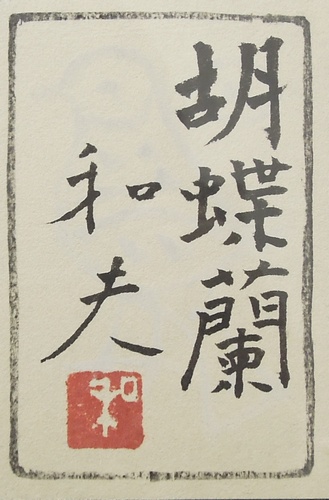 胡蝶蘭
和夫
和